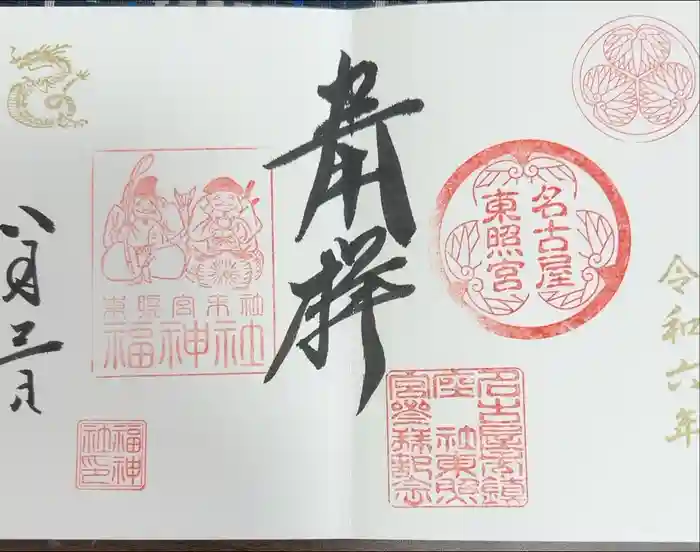 令和六年
名古屋
東照宮
名古屋市鎮
座 社東照
宮參拜記念
奉拝
東照宮末社
福神社
福神
社印
八月三日